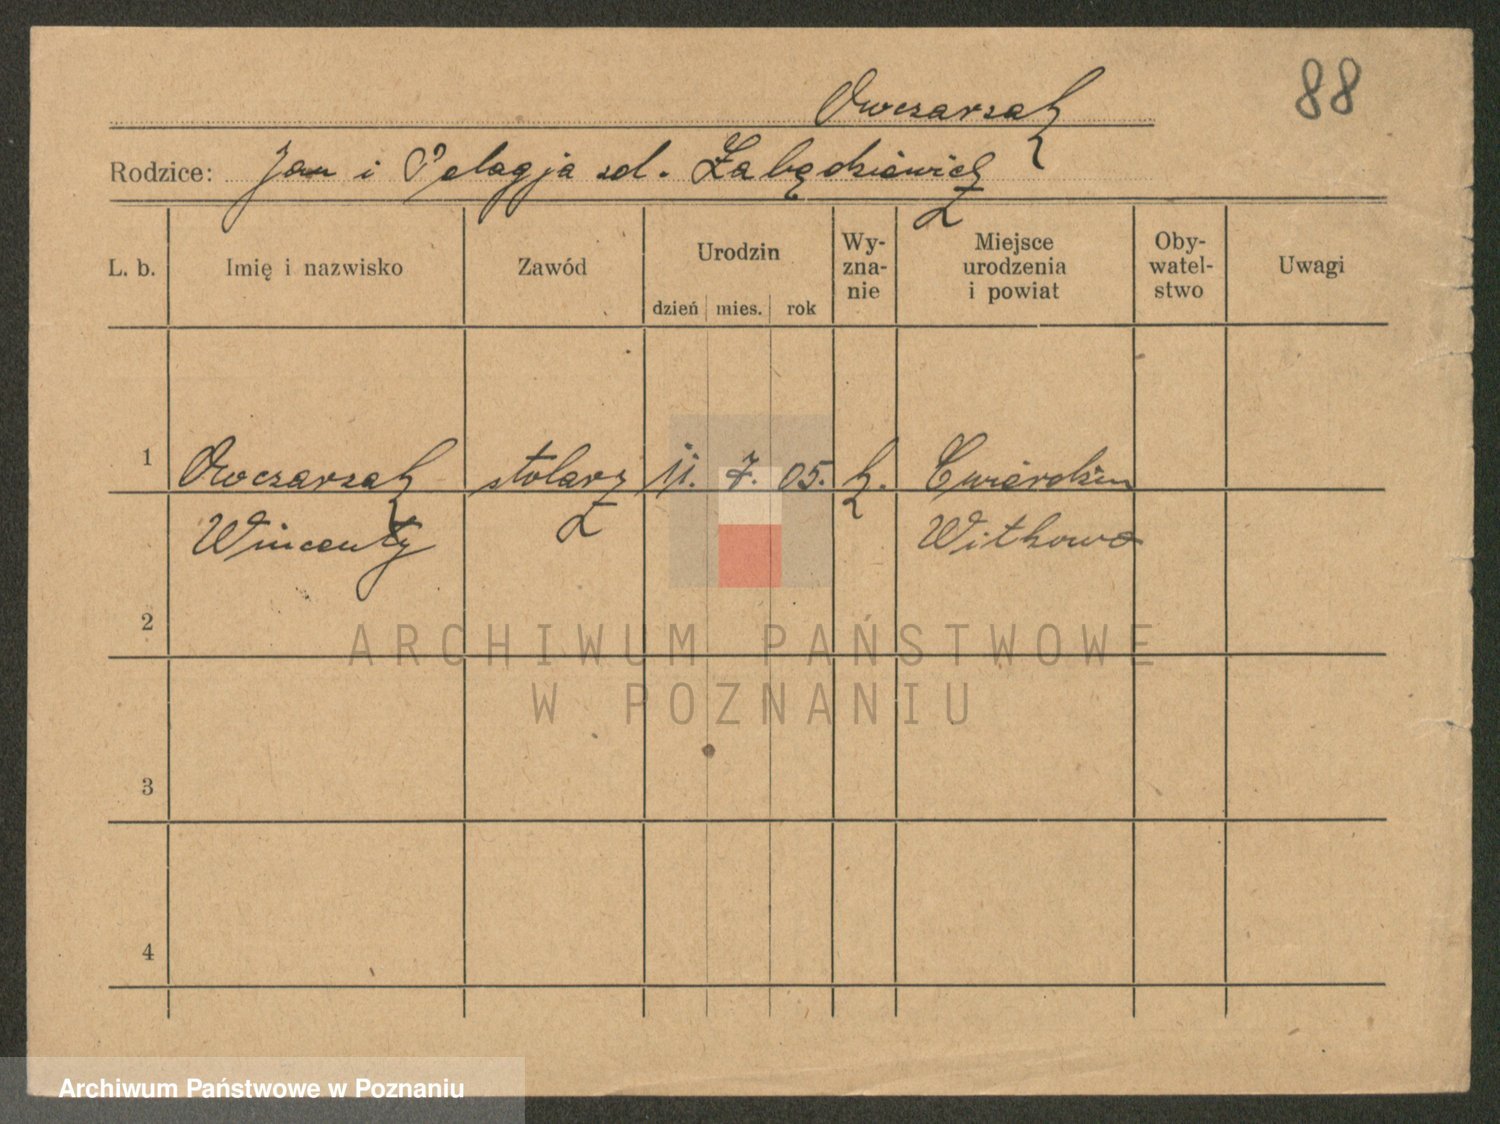 88
Owczarzak
Rodzice: Jan i Pelagja zd. Łabędziewicz
L. b. Imię i nazwisko Zawód Urodzin dzień mies. rok Wy-zna-nie Miejsce urodzenia i powiat Oby-watel-stwo Uwagi
1 Owczarzak stolarz 11. 7. 05. k. Ćwierdzin
Wincenty Witkowo
2
ARCHIWUM PAŃSTWOWE
W POZNANIU
3
4
Archiwum Państwowe w Poznaniu